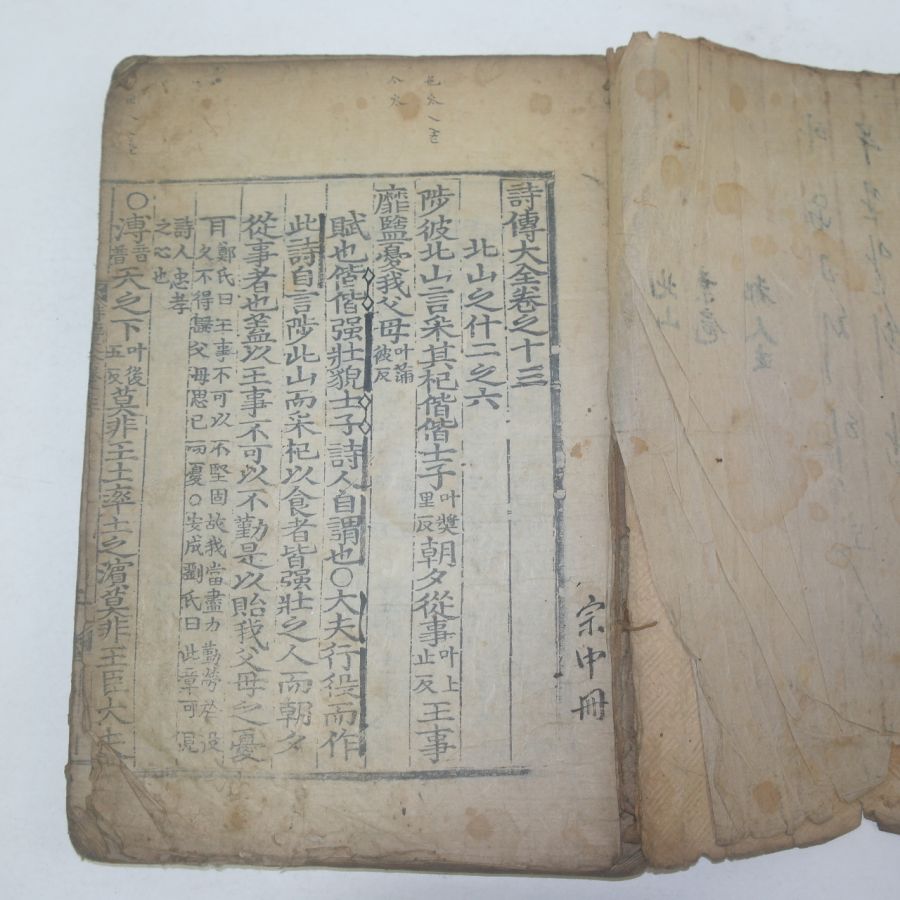 詩傳大全卷之十三
北山之什二之六
陟彼北山言采其杞偕偕士子叶奬里反朝夕從事叶上止反王事
靡盬憂我父母叶滿彼反
賦也偕偕强壯貌士子詩人自謂也○大夫行役而作
此詩自言陟北山而采杞以食者皆强壯之人而朝夕
從事者也盖以王事不可以不勤是以貽我父母之憂
耳鄭氏曰王事不可以不堅固故我當盡力勤勞於役
久不得歸父母思已而憂○安成劉氏曰此章可見
詩人忠孝
之心也
○溥音普天之下叶後五反莫非王土率土之濱莫非王臣大夫
宗中冊
北山